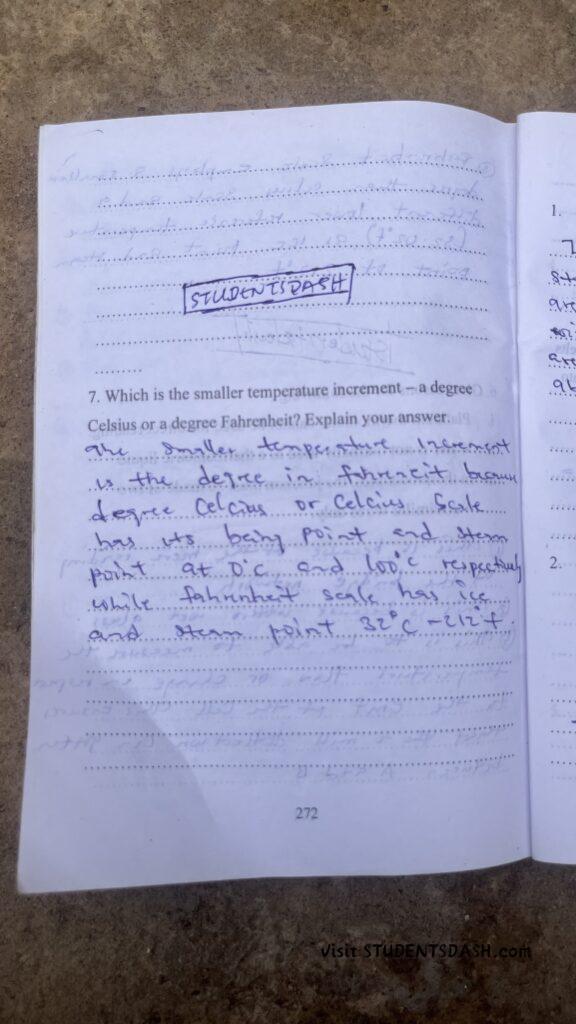 STUDENTSDASH
7. Which is the smaller temperature increment – a degree
Celsius or a degree Fahrenheit? Explain your answer.
The smaller temperature increment
is the degree in fahrenheit because
degree Celcius or Celcius Scale
has its being point and steam
point at 0°C and 100°C respectively
while fahrenheit scale has ice
and steam point 32°C – 212°f.
272
1.
2.
Visit STUDENTSDASH.com